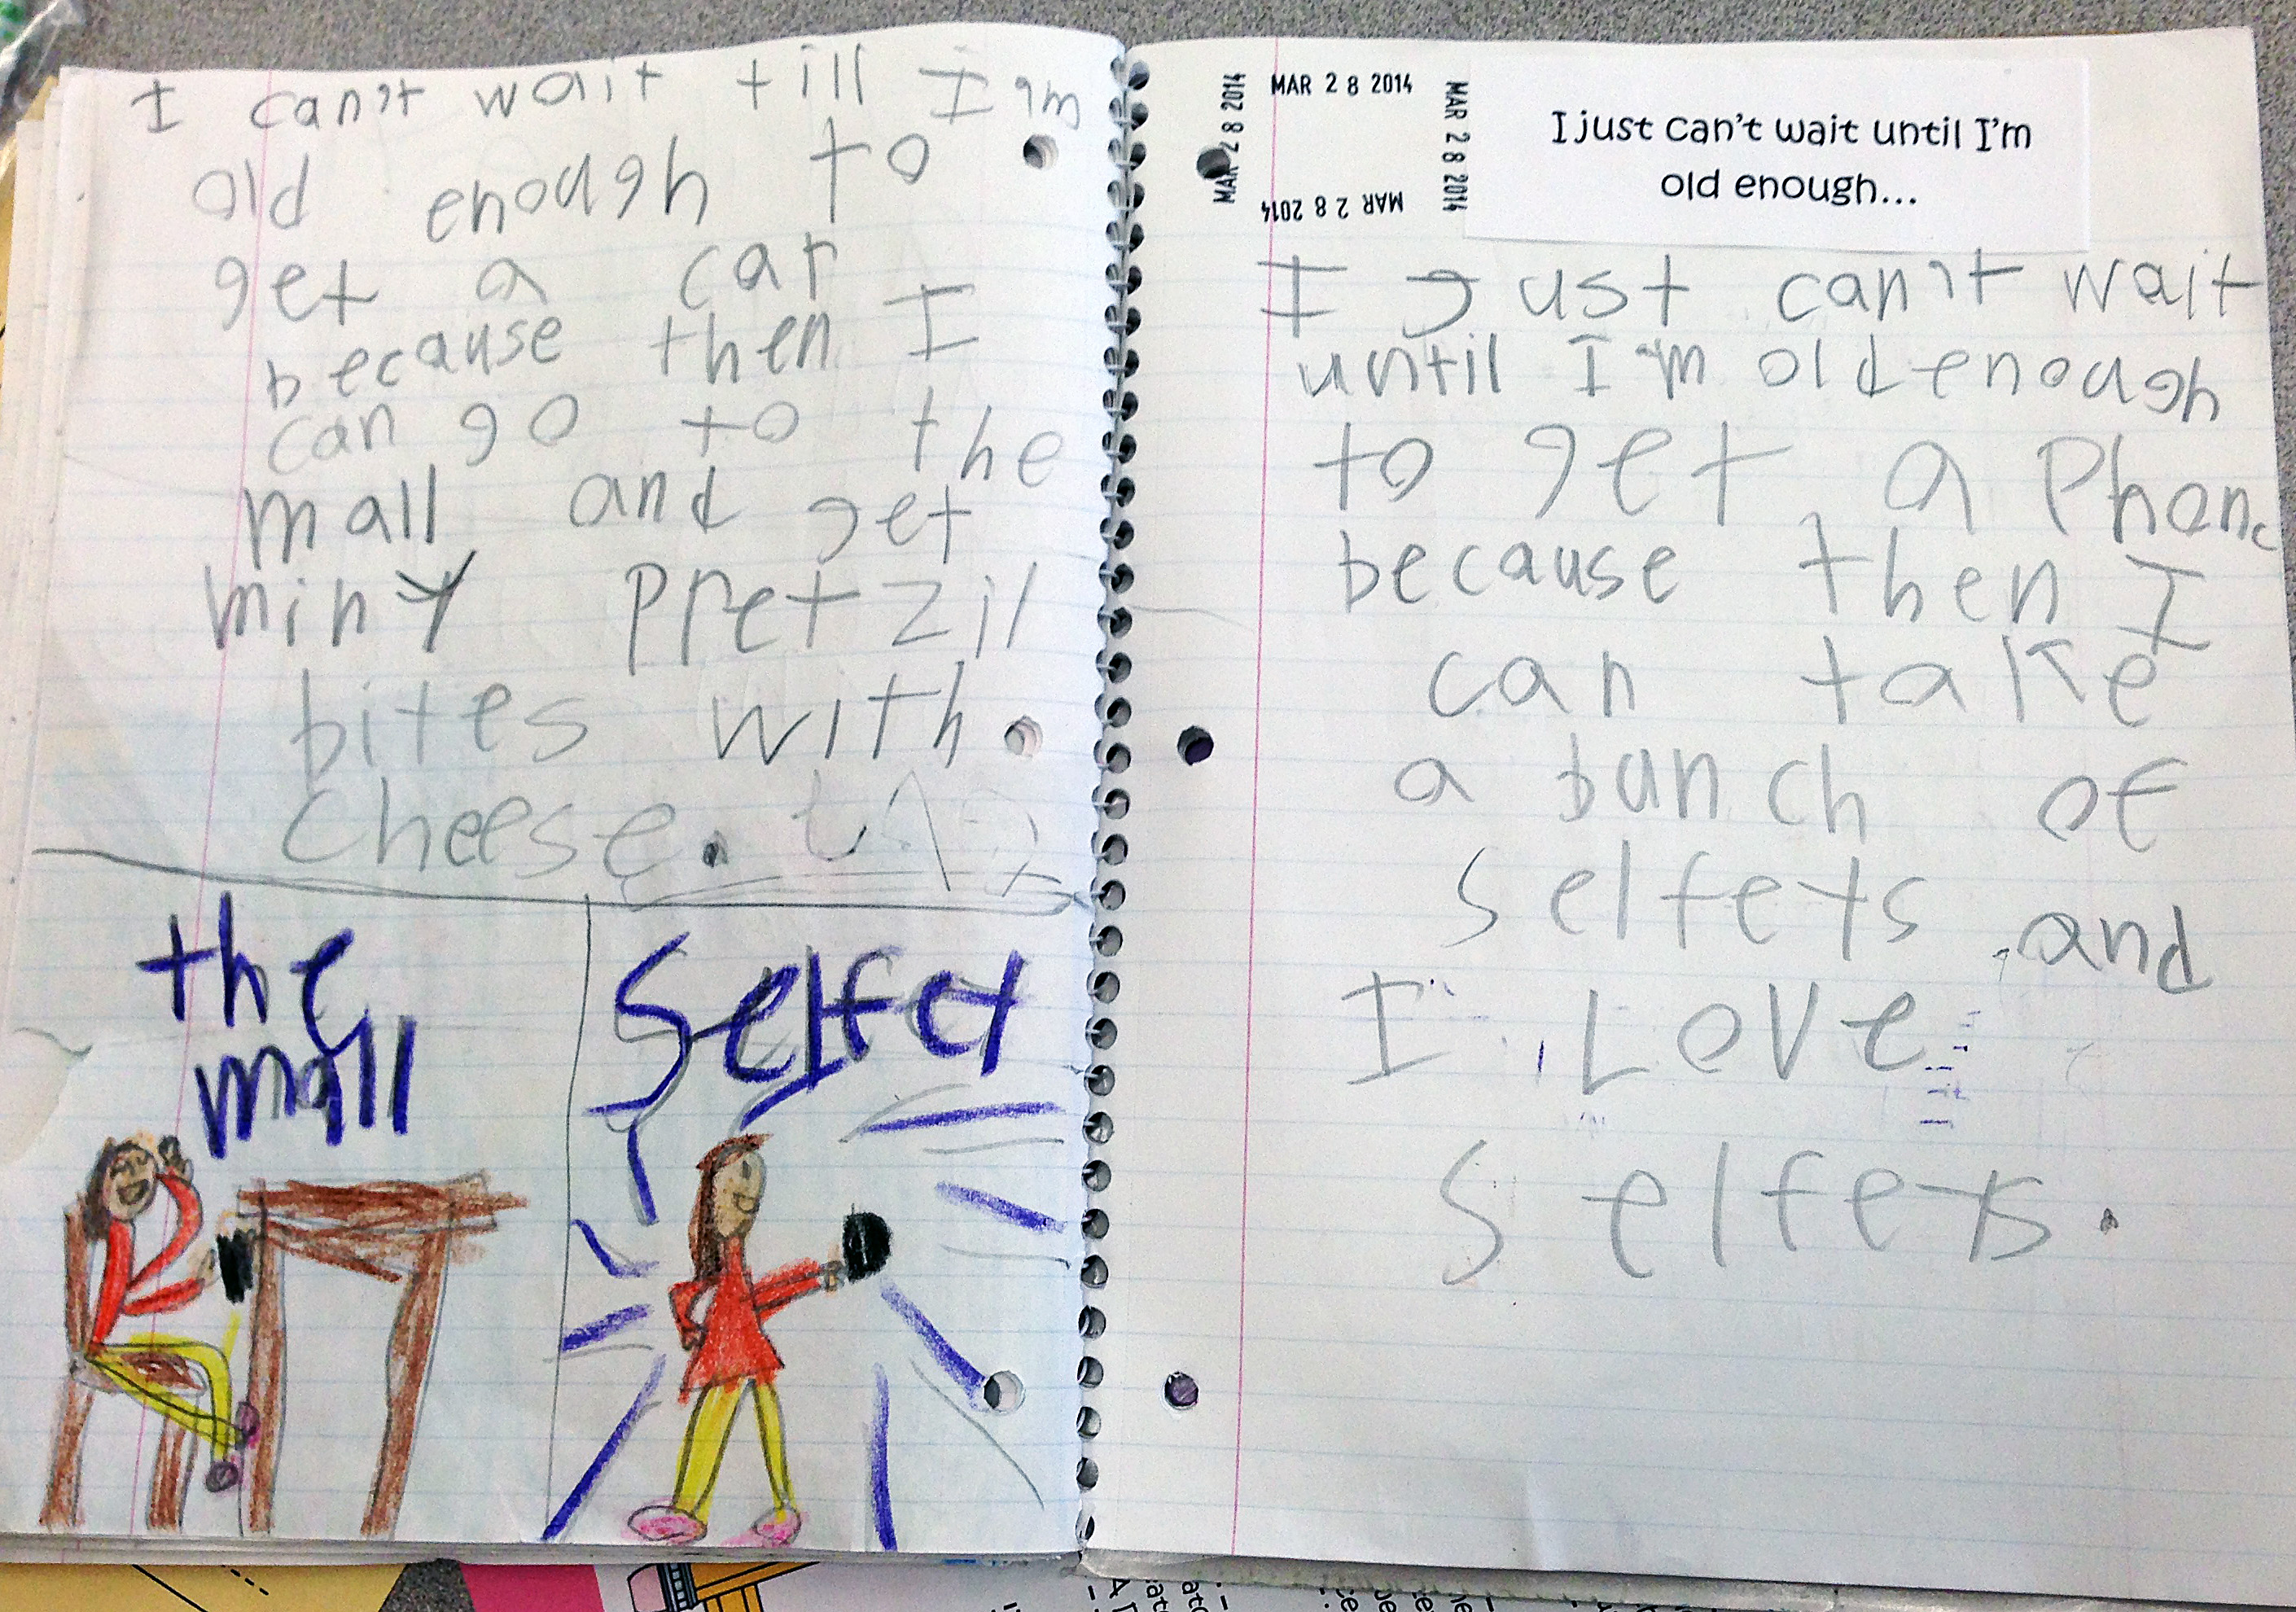 I can't wait till I'm
old enough to
get a car
because then I
can go to the
mall and get
miny pretzil
bites with
cheese.
the
mall
Selfet
MAR 28 2014
MAR 28 2014
MAR 28 2014
MAR 28 2014
I just can't wait until I'm
old enough...
I just can't wait
until I'm old enough
to get a Phone
because then I
can take
a bunch of
selfets and
I Love
selfets.